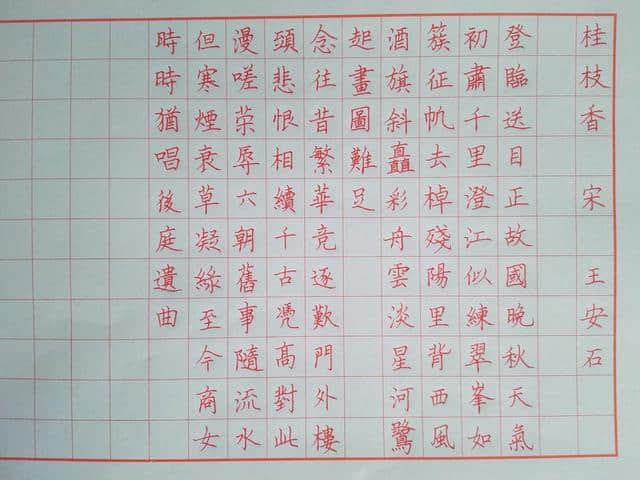 桂枝香 宋 王安石
登臨送目正故國晚秋天氣
初肅千里澄江似練翠峯如
簇征帆去棹殘陽里背西風
酒旗斜矗彩舟雲淡星河鷺
起畫圖難足
念往昔繁華竞逐歎門外樓
頭悲恨相續千古凭高對此
漫嗟荣辱六朝舊事隨流水
但寒煙衰草凝綠至今商女
時時猶唱後庭遺曲